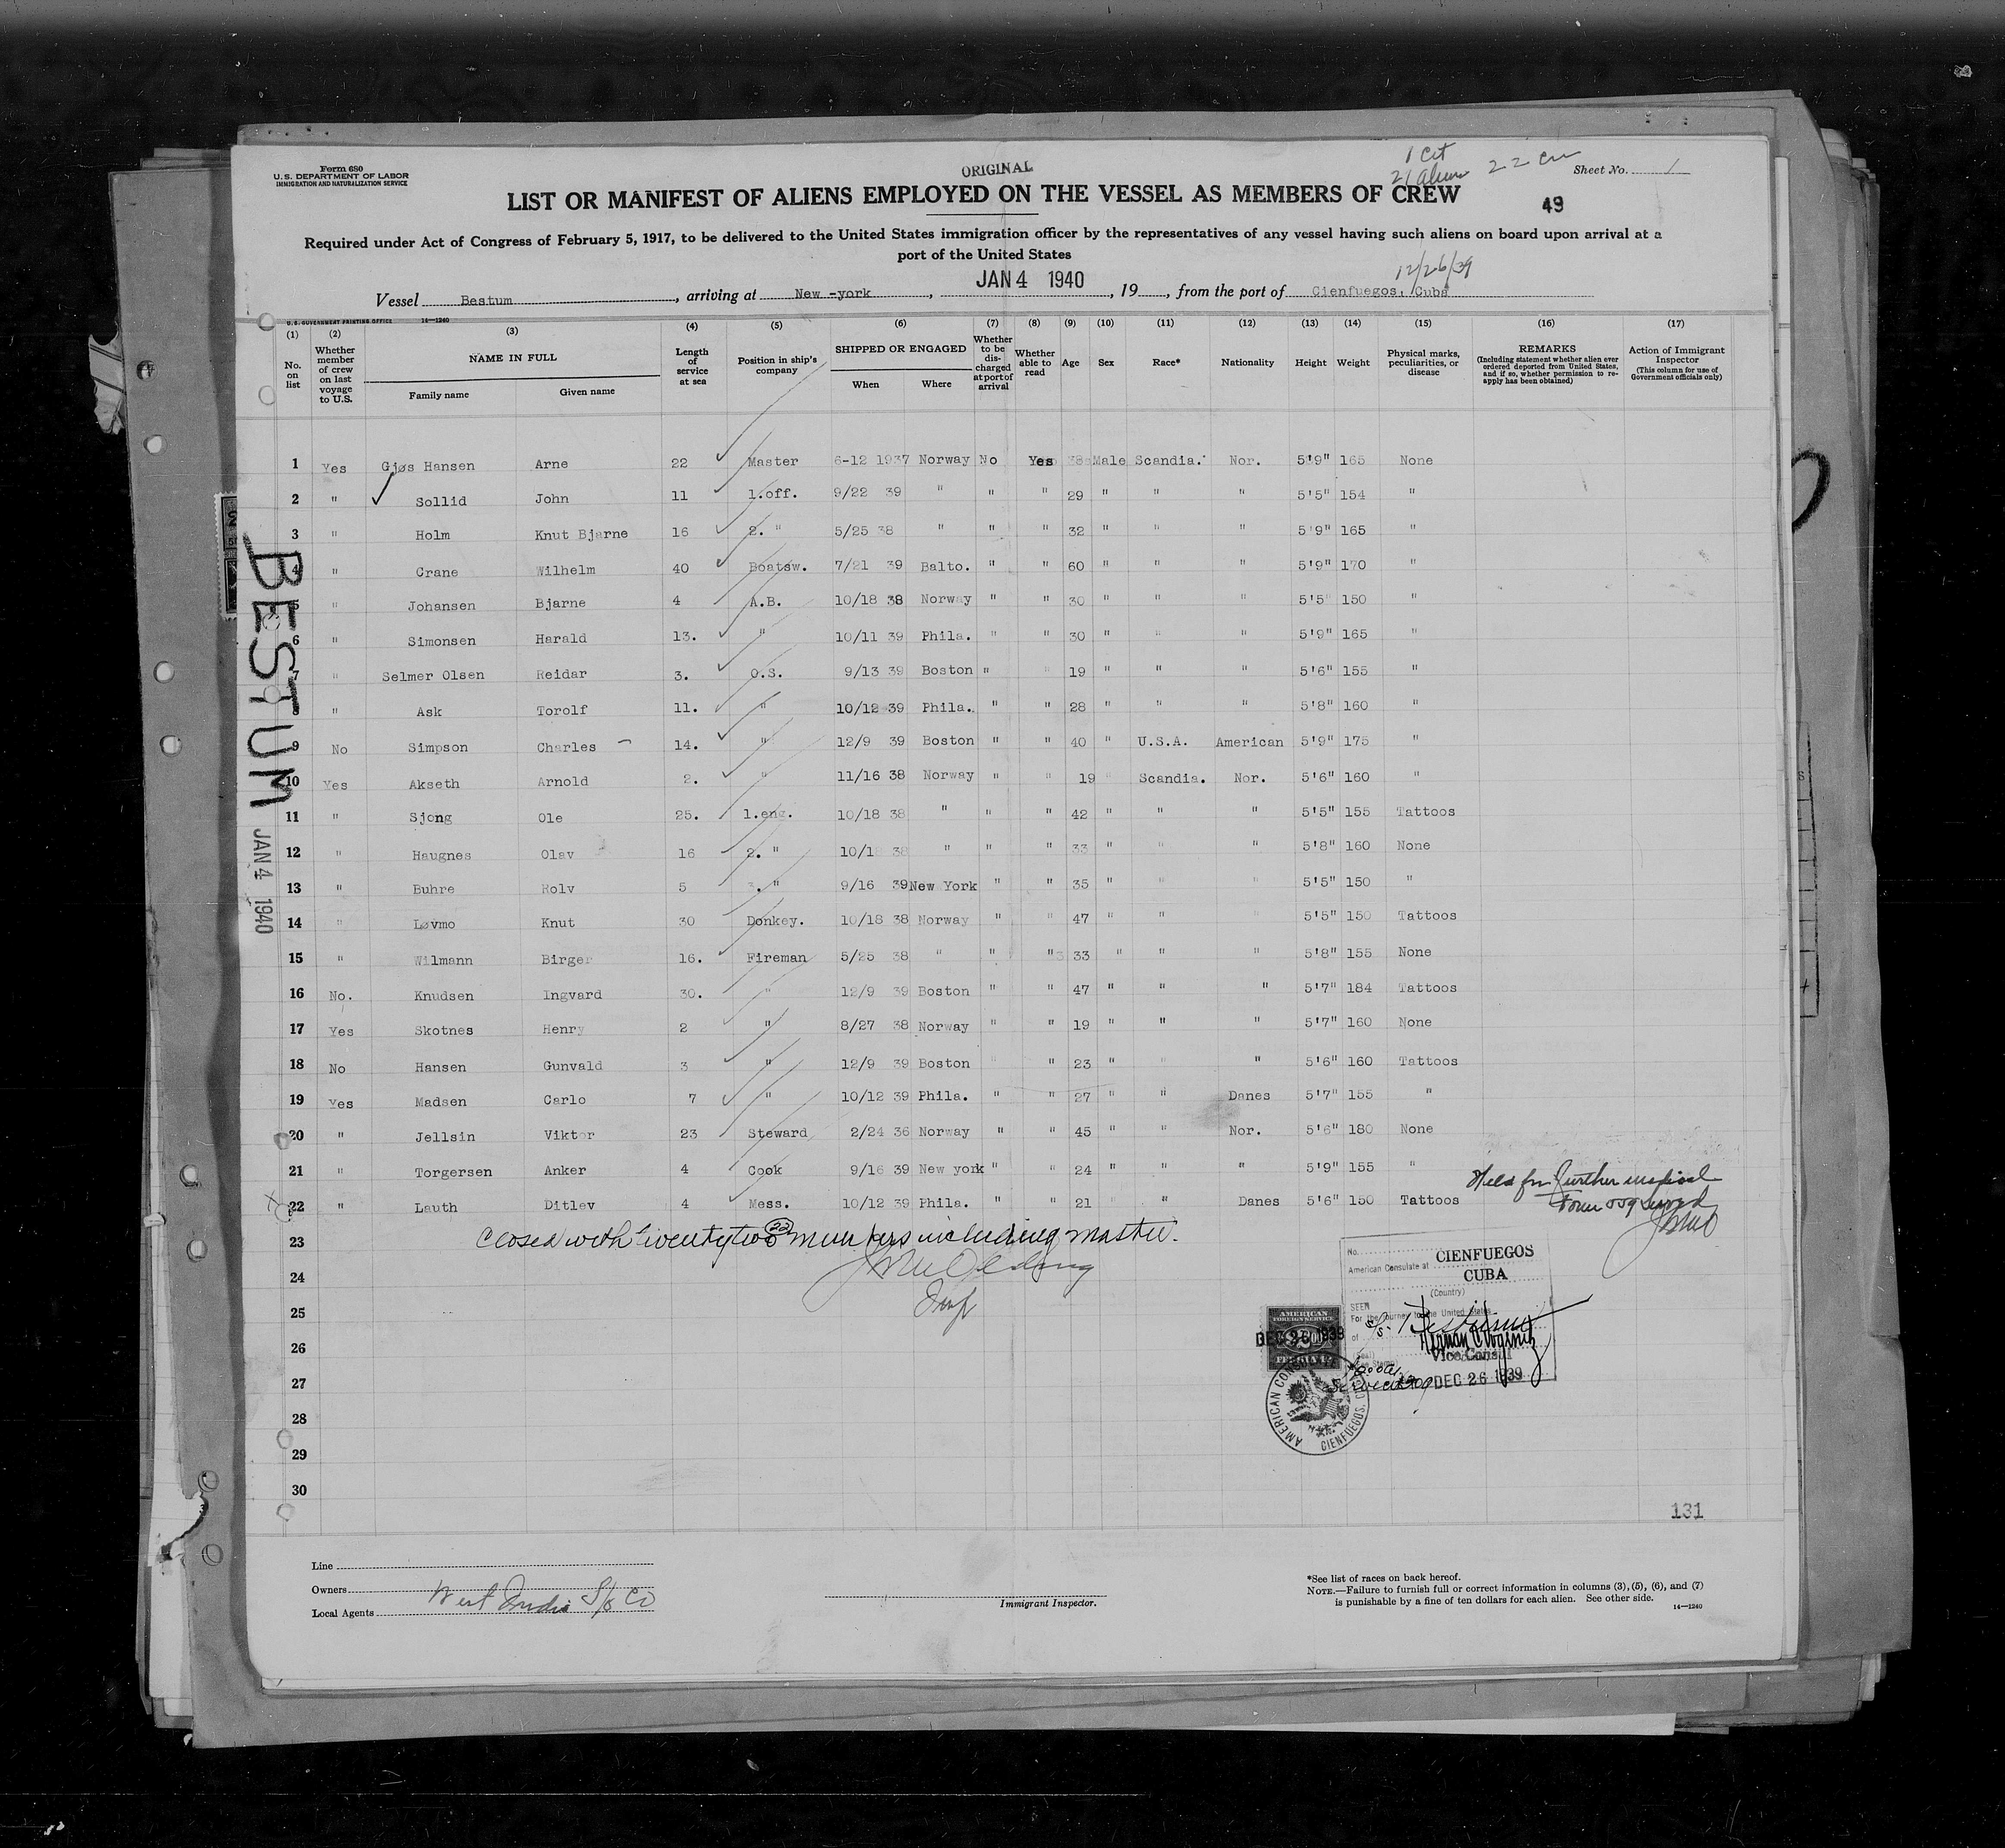 Form 680
U. S. DEPARTMENT OF LABOR
IMMIGRATION AND NATURALIZATION SERVICE
ORIGINAL
1 Cit
21 Aliens
22
Sheet No. 1
LIST OR MANIFEST OF ALIENS EMPLOYED ON THE VESSEL AS MEMBERS OF CREW
49
Required under Act of Congress of February 5, 1917, to be delivered to the United States immigration officer by the representatives of any vessel having such aliens on board upon arrival at a
port of the United States
12/26/39
Vessel Bestum, arriving at New -york, JAN 4 1940, 19, from the port of Cienfuegos, Cuba
U.S. GOVERNMENT PRINTING OFFICE 14—1240
(1) (2) (3) (4) (5) (6) (7) (8) (9) (10) (11) (12) (13) (14) (15) (16) (17)
No. on list
Whether member of crew on last voyage to U.S.
NAME IN FULL
Family name
Given name
Length of service at sea
Position in ship's company
SHIPPED OR ENGAGED
When
Where
Whether to be discharged at port of arrival
Whether able to read
Age
Sex
Race*
Nationality
Height
Weight
Physical marks, peculiarities, or disease
REMARKS
(Including statement whether alien ever ordered deported from United States, and if so, whether permission to reapply has been obtained)
Action of Immigrant Inspector
(This column for use of Government officials only)
1 Yes Gjøs Hansen Arne 22 Master 6-12 1937 Norway No Yes 38 Male Scandia. Nor. 5'9" 165 None
2 " Sollid John 11 1.off. 9/22 39 " " " 29 " " " 5'5" 154 "
3 " Holm Knut Bjarne 16 2. " 5/25 38 " " " 32 " " " 5'9" 165 "
4 " Crane Wilhelm 40 Boatsw. 7/21 39 Balto. " " 60 " " " 5'9" 170 "
5 " Johansen Bjarne 4 A.B. 10/18 38 Norway " " 30 " " " 5'5" 150 "
6 " Simonsen Harald 13. " 10/11 39 Phila. " " 30 " " " 5'9" 165 "
7 " Selmer Olsen Reidar 3. O.S. 9/13 39 Boston " " 19 " " " 5'6" 155 "
8 " Ask Torolf 11. " 10/12 39 Phila. " " 28 " " " 5'8" 160 "
9 No Simpson Charles 14. " 12/9 39 Boston " " 40 " U.S.A. American 5'9" 175 "
10 Yes Akseth Arnold 2. " 11/16 38 Norway " " 19 " Scandia. Nor. 5'6" 160 "
11 " Sjong Ole 25. 1.eng. 10/18 38 " " " 42 " " " 5'5" 155 Tattoos
12 " Haugnes Olav 16 2. " 10/18 38 " " " 33 " " " 5'8" 160 None
13 " Buhre Rolv 5 3. " 9/16 39 New York " " 35 " " " 5'5" 150 "
14 " Løvmo Knut 30 Donkey. 10/18 38 Norway " " 47 " " " 5'5" 150 Tattoos
15 " Wilmann Birger 16. Fireman 5/25 38 " " " 33 " " " 5'8" 155 None
16 No. Knudsen Ingvard 30. " 12/9 39 Boston " " 47 " " " 5'7" 184 Tattoos
17 Yes Skotnes Henry 2 " 8/27 38 Norway " " 19 " " " 5'7" 160 None
18 No Hansen Gunvald 3 " 12/9 39 Boston " " 23 " " " 5'6" 160 Tattoos
19 Yes Madsen Carlo 7 " 10/12 39 Phila. " " 27 " " Danes 5'7" 155 "
20 " Jellsin Viktor 23 Steward 2/24 36 Norway " " 45 " " Nor. 5'6" 180 None
21 " Torgersen Anker 4 Cook 9/16 39 New york " " 24 " " " 5'9" 155 "
22 " Lauth Ditlev 4 Mess. 10/12 39 Phila. " " 21 " " Danes 5'6" 150 Tattoos
Held for further medical
Form 559 served
23 Closed with twenty two (22) members including master.
24
25 Insp
26
27
28
29
30
BESTUM
JAN 4 1940
No.
American Consulate at CIENFUEGOS
CUBA
(Country)
SEEN
For the journey to the United States
of S/S. Bestum
Vice Consul
DEC 26 1939
AMERICAN FOREIGN SERVICE
DEC 26 1939
AMERICAN CONSULATE CIENFUEGOS, CUBA
131
Line
Owners
Local Agents West India S/S Co
Immigrant Inspector.
*See list of races on back hereof.
NOTE.—Failure to furnish full or correct information in columns (3), (5), (6), and (7)
is punishable by a fine of ten dollars for each alien. See other side.
14—1240